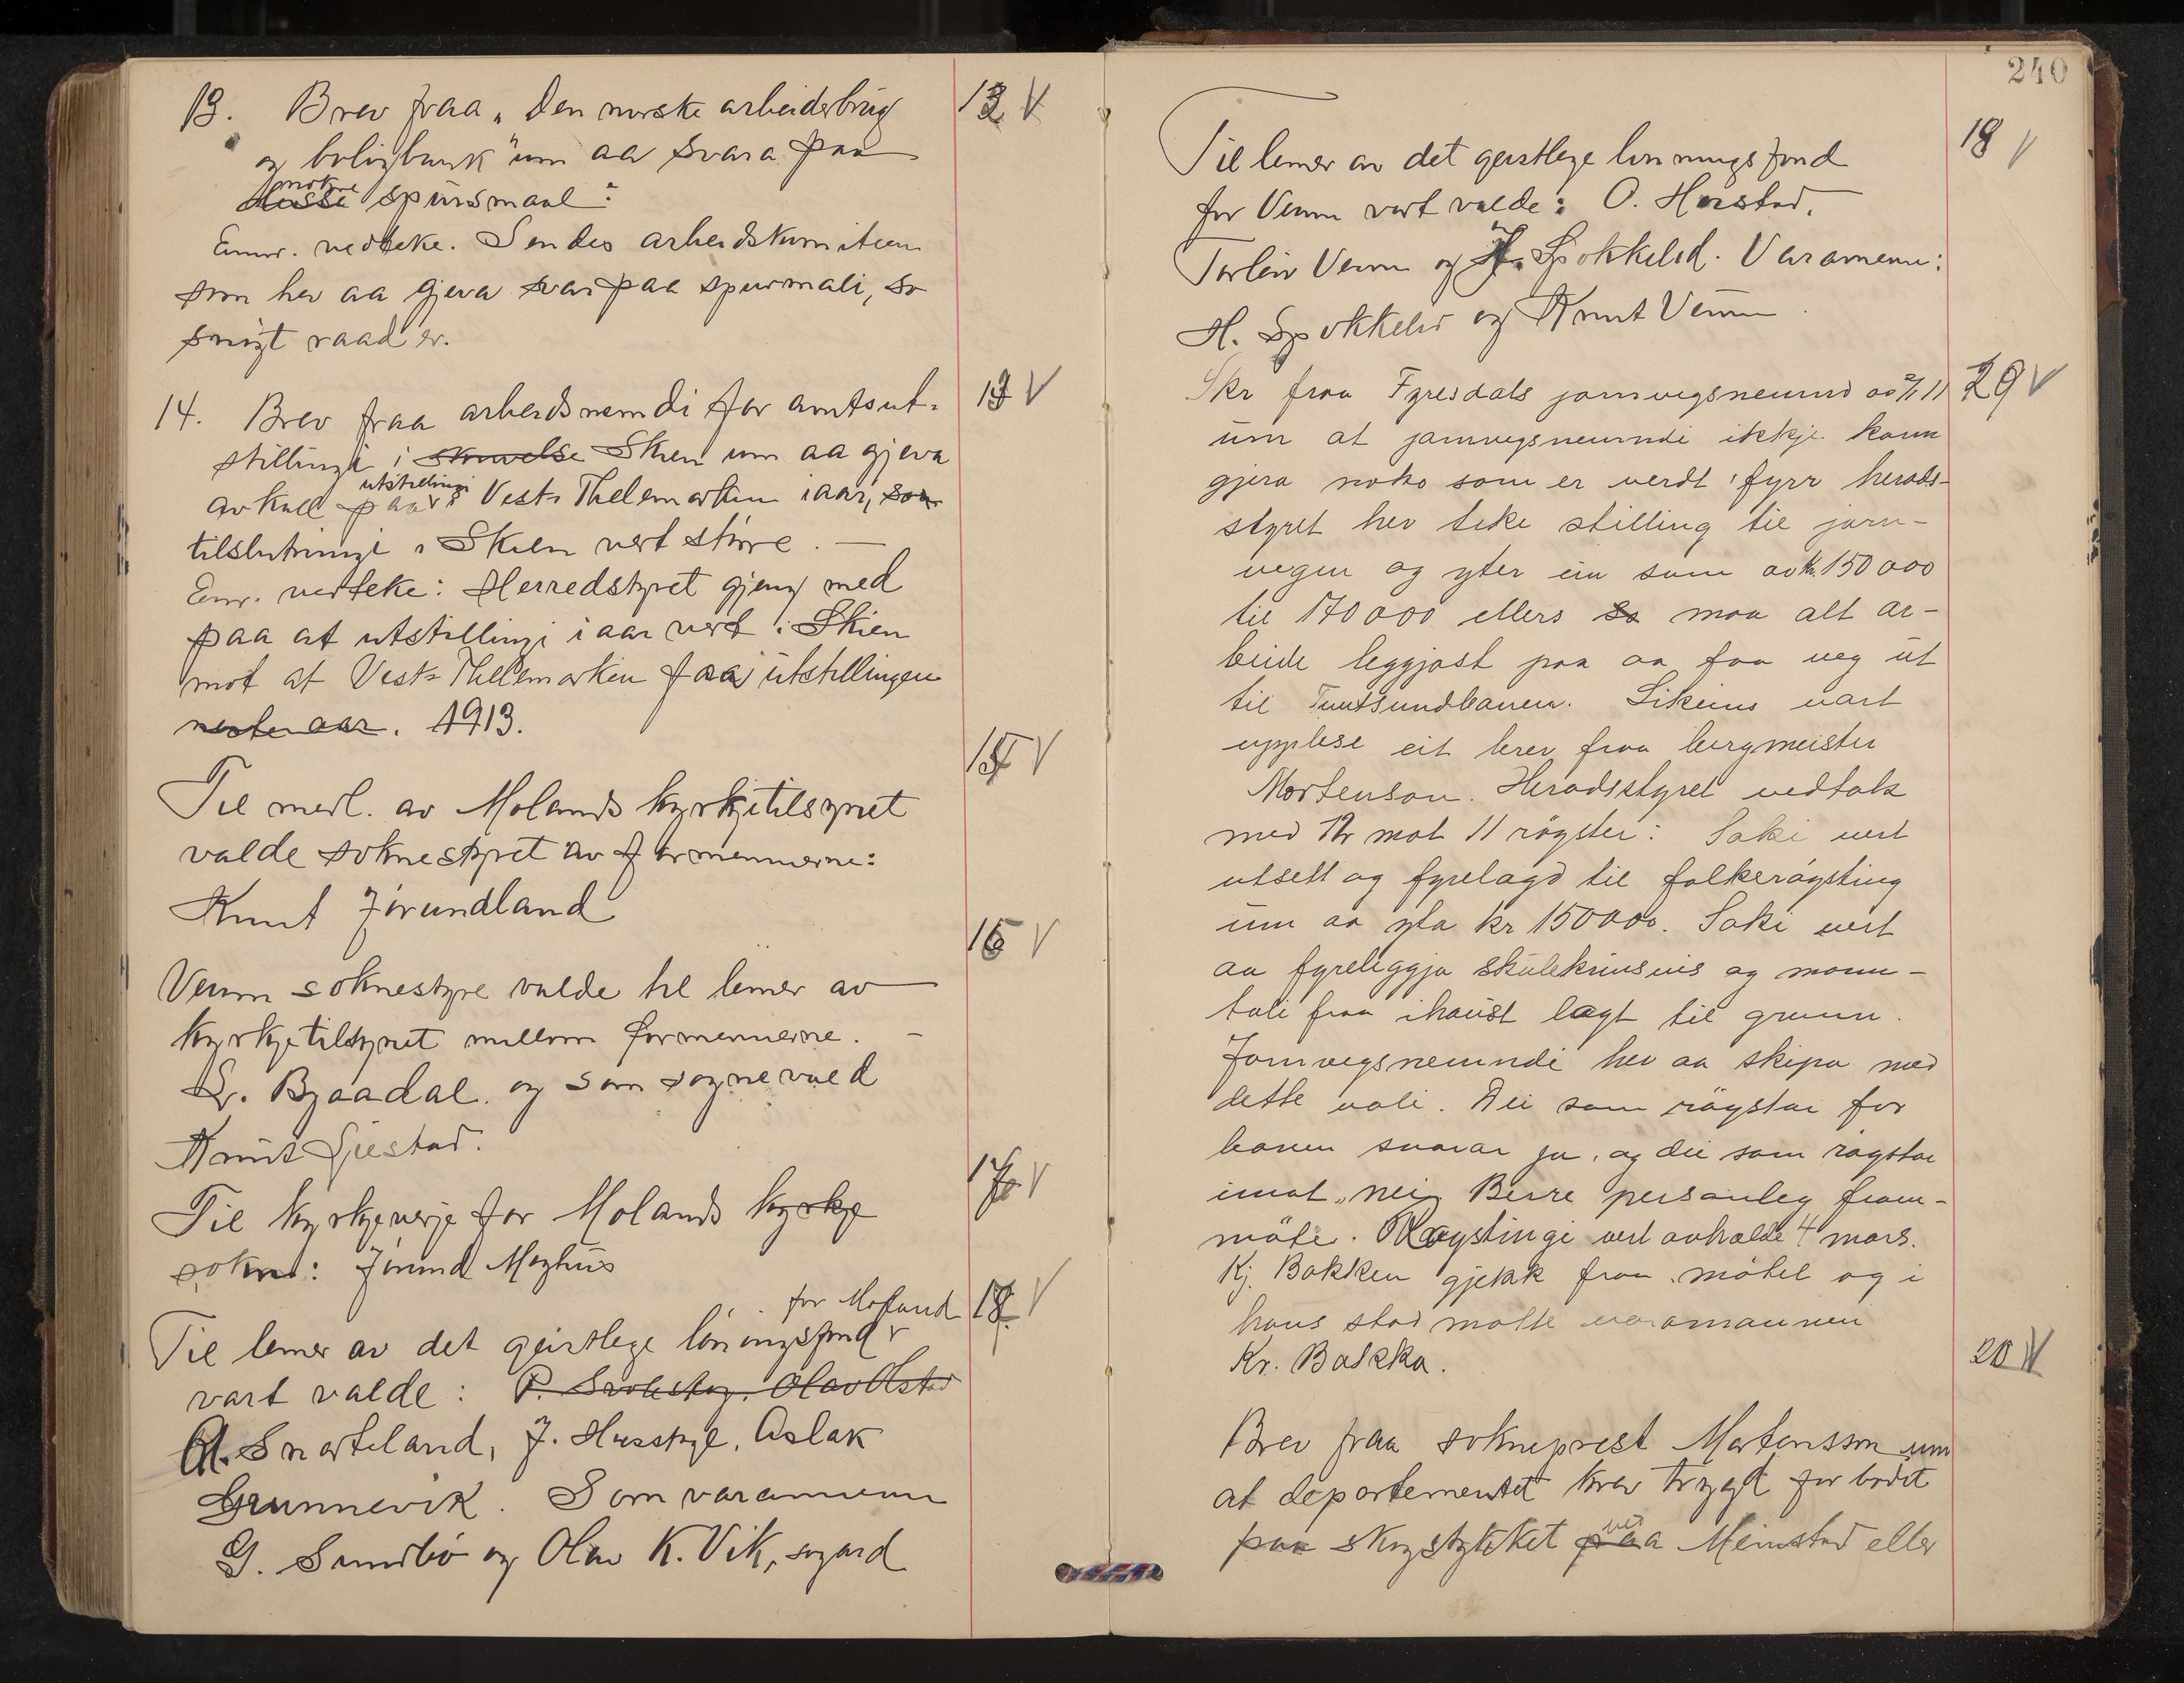 13. Brev fraa „Den norske arbeiderbrug 12 V
og boligbank" um aa svara paa
nokre
spursmaal:
Einr. vedteke. Sendes arbeidskomiteen
som hev aa gjeva svar paa spursmali, so
snøgt raad er.
14. Brev fraa arbeidsnemdi for amtsut- 13 V
stillingi i Skien um aa gjeva
avkall paa utstellingi i Vest-Thelemarken iaar, so
tilslutningi i Skien vert større. —
Einr. vedteke: Herredstyret gjeng med
paa at utstillingi iaar vert i Skien
mot at Vest-Thelemarken faar utstellingen
neste aar. 1913.
15 V
Til medl. av Molands kyrkjetilsynet
valde soknestyret av formennerne:
Knut Jørundland
16 V
Veum soknestyre valde til lemer av
kyrkjetilsynet millom formennerne. —
Bjaadal. og som vald
Knut
17 V
Til kyrkjeverje for Molands kyrkje
sokn: Jørund Moghus
for Moland 18 V
Til lemer av det geistlege løningsfond
vart valde: Olav Olstad
Snarteland, J. Husstyl, Aslak
Grunnevik. Som varamenn
G. Sundbø og Olav K. Vik,
240
18 V
Til lemer av det geistlege lønningsfond
for Veum vart valde: O. Haustad,
Torleiv Veum og Spokkelid. Varamenn:
H. Spokkelid og Knut Veum.
Skr fraa Fyresdals jarnvegsnemnd 29 V
um at jarnvegsnemndi ikkje kann
gjera noko som er verdt fyrr herads-
styret hev teke stilling til jarn-
vegen og yter ein sum av kr. 150 000
til 170 000 ellers so maa alt ar-
beide leggjast paa aa faa veg ut
til Tveitsundbanen. Likeins vart
upplese eit brev fraa bergmeister
Mortenson. Heradsstyret vedtok
med 12 mot 11 røyster: Saki vert
utsett og fyrelagd til folkerøysting
um aa yta kr 150000. Saki vert
aa fyreleggja skulekrinsvis og mann-
tali fraa ihaust lagt til grunn.
Jarnvegsnemndi hev aa skipa med
dette vali. Dei som røystar for
banen svarar ja, og dei som røystar
imot „nei„ Berre personleg fram-
møte. Røystingi vert avhalde 4 mars.
Kj. Bakken gjekk fraa møtet og i
hans stad møtte varamannen
Kr. Bakka.
20 V
Brev fraa sokneprest Mortensson um
at departementet krev trygd for bodet
paa skogstykket ved paa Meinstad eller